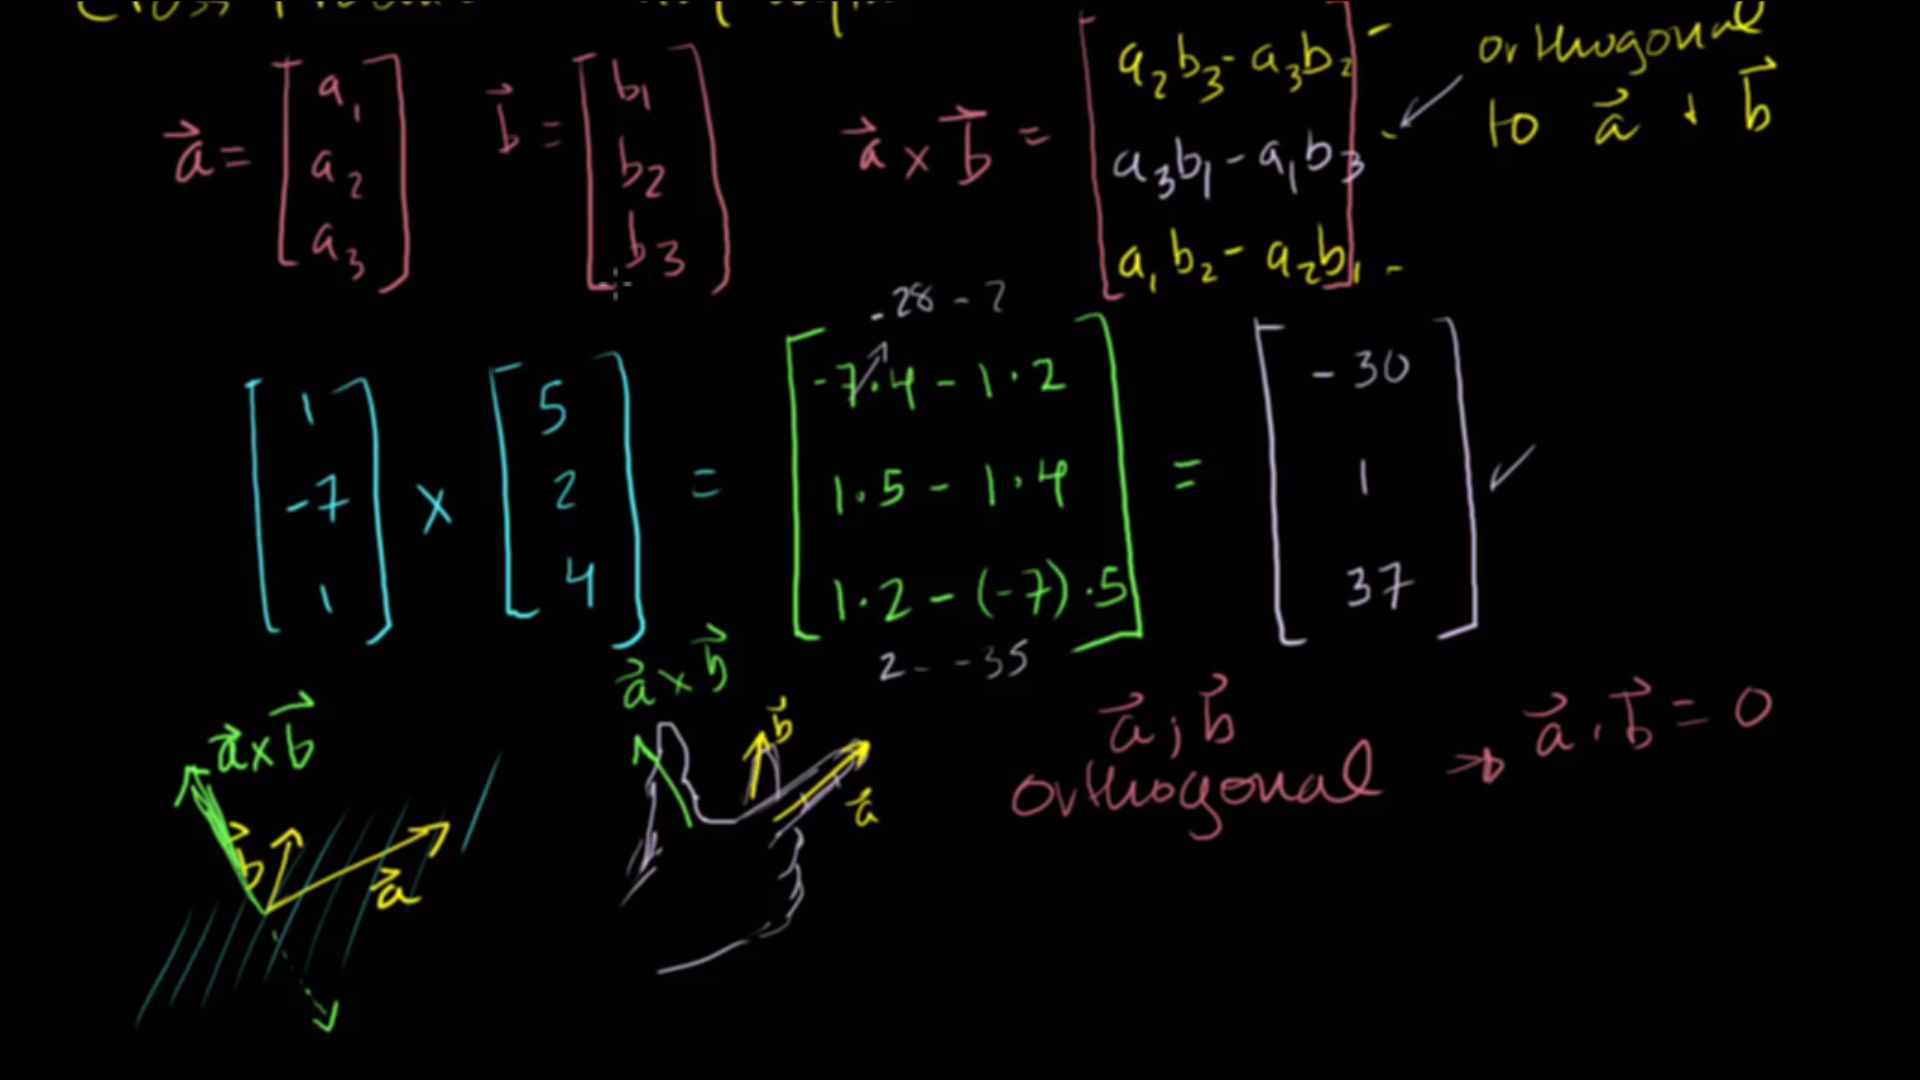 Cross Product
a⃗ = [a₁ a₂ a₃] b⃗ = [b₁ b₂ b₃] a⃗ × b⃗ = [a₂b₃ - a₃b₂
a₃b₁ - a₁b₃
a₁b₂ - a₂b₁]
orthogonal
to a⃗ + b⃗
-28 - 2
[1 -7 1] × [5 2 4] = [-7·4 - 1·2
1·5 - 1·4
1·2 - (-7)·5] = [-30 1 37]
2 - -35
a⃗ × b⃗
b⃗
a⃗
a⃗ × b⃗
b⃗
a⃗
a⃗, b⃗
orthogonal → a⃗ · b⃗ = 0